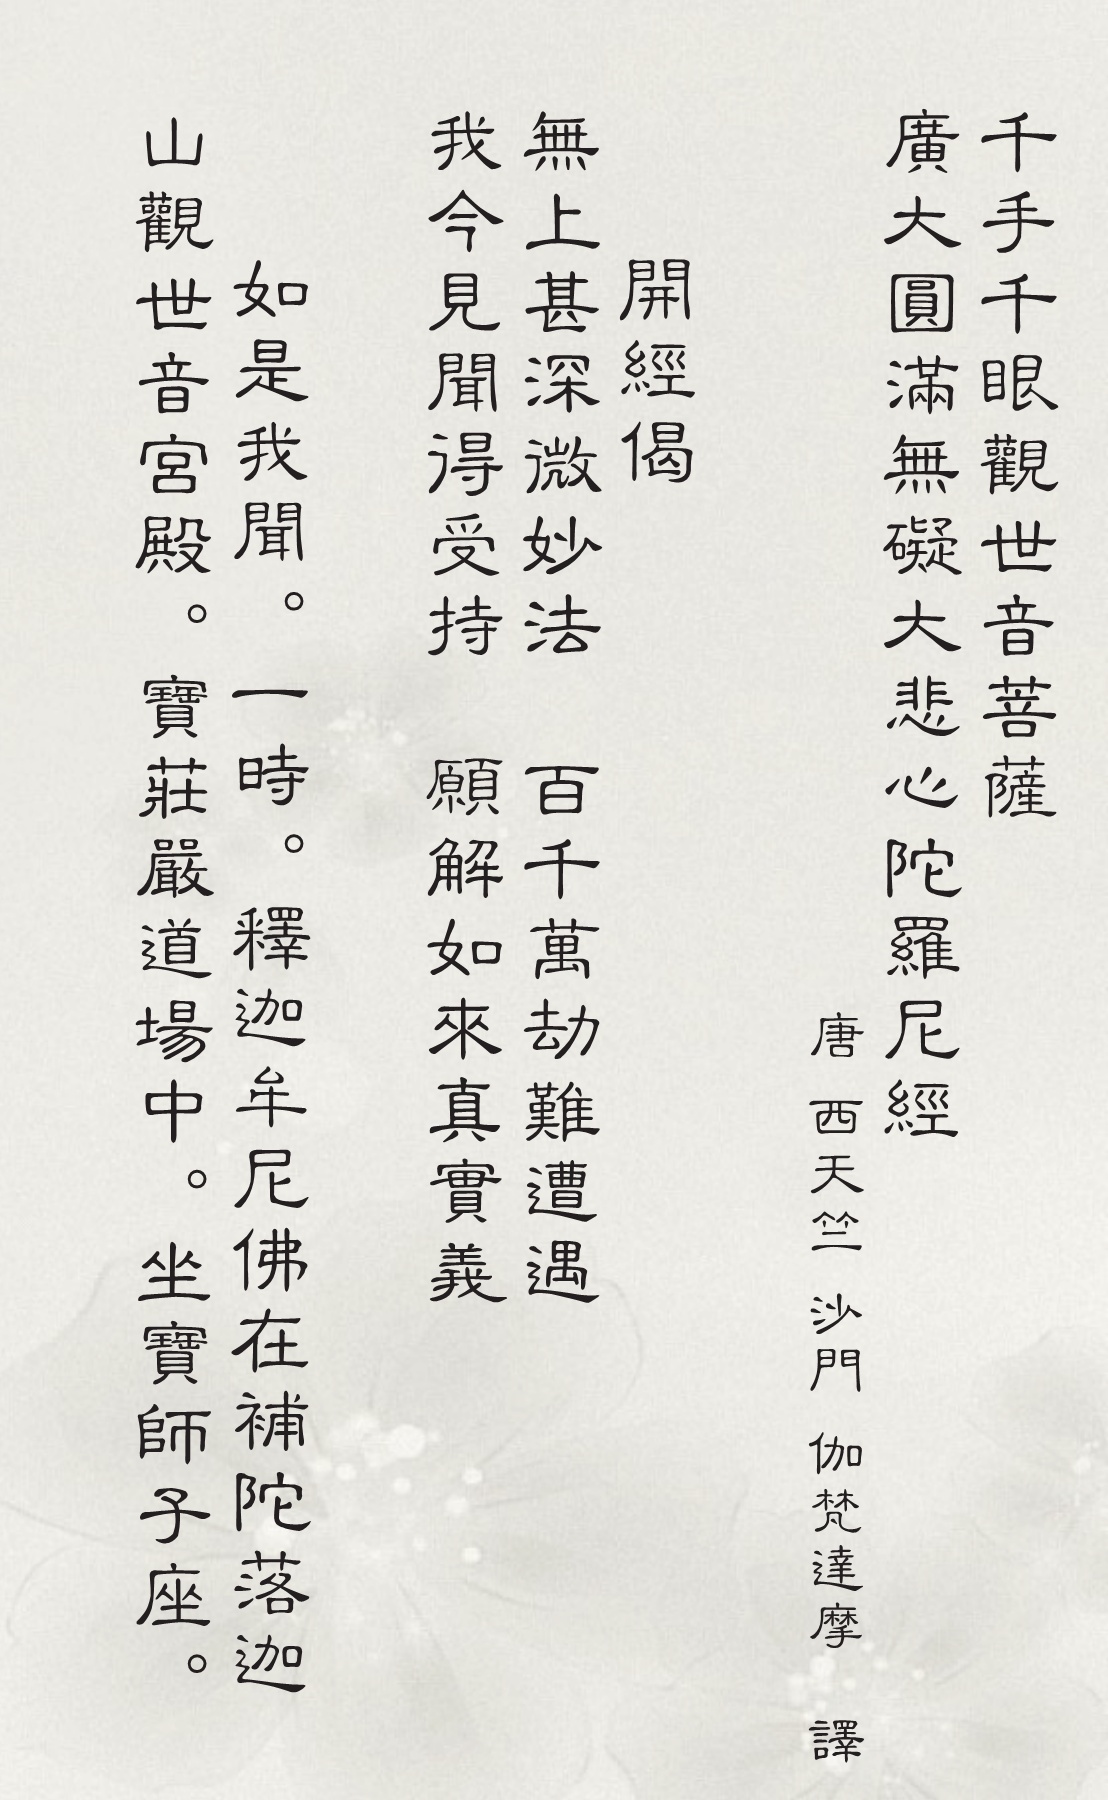 千手千眼觀世音菩薩
廣大圓滿無礙大悲心陀羅尼經
唐 西天竺 沙門 伽梵達摩 譯
開經偈
無上甚深微妙法 百千萬劫難遭遇
我今見聞得受持 願解如來真實義
如是我聞。一時。釋迦牟尼佛在補陀落迦
山觀世音宮殿。寶莊嚴道場中。坐寶師子座。